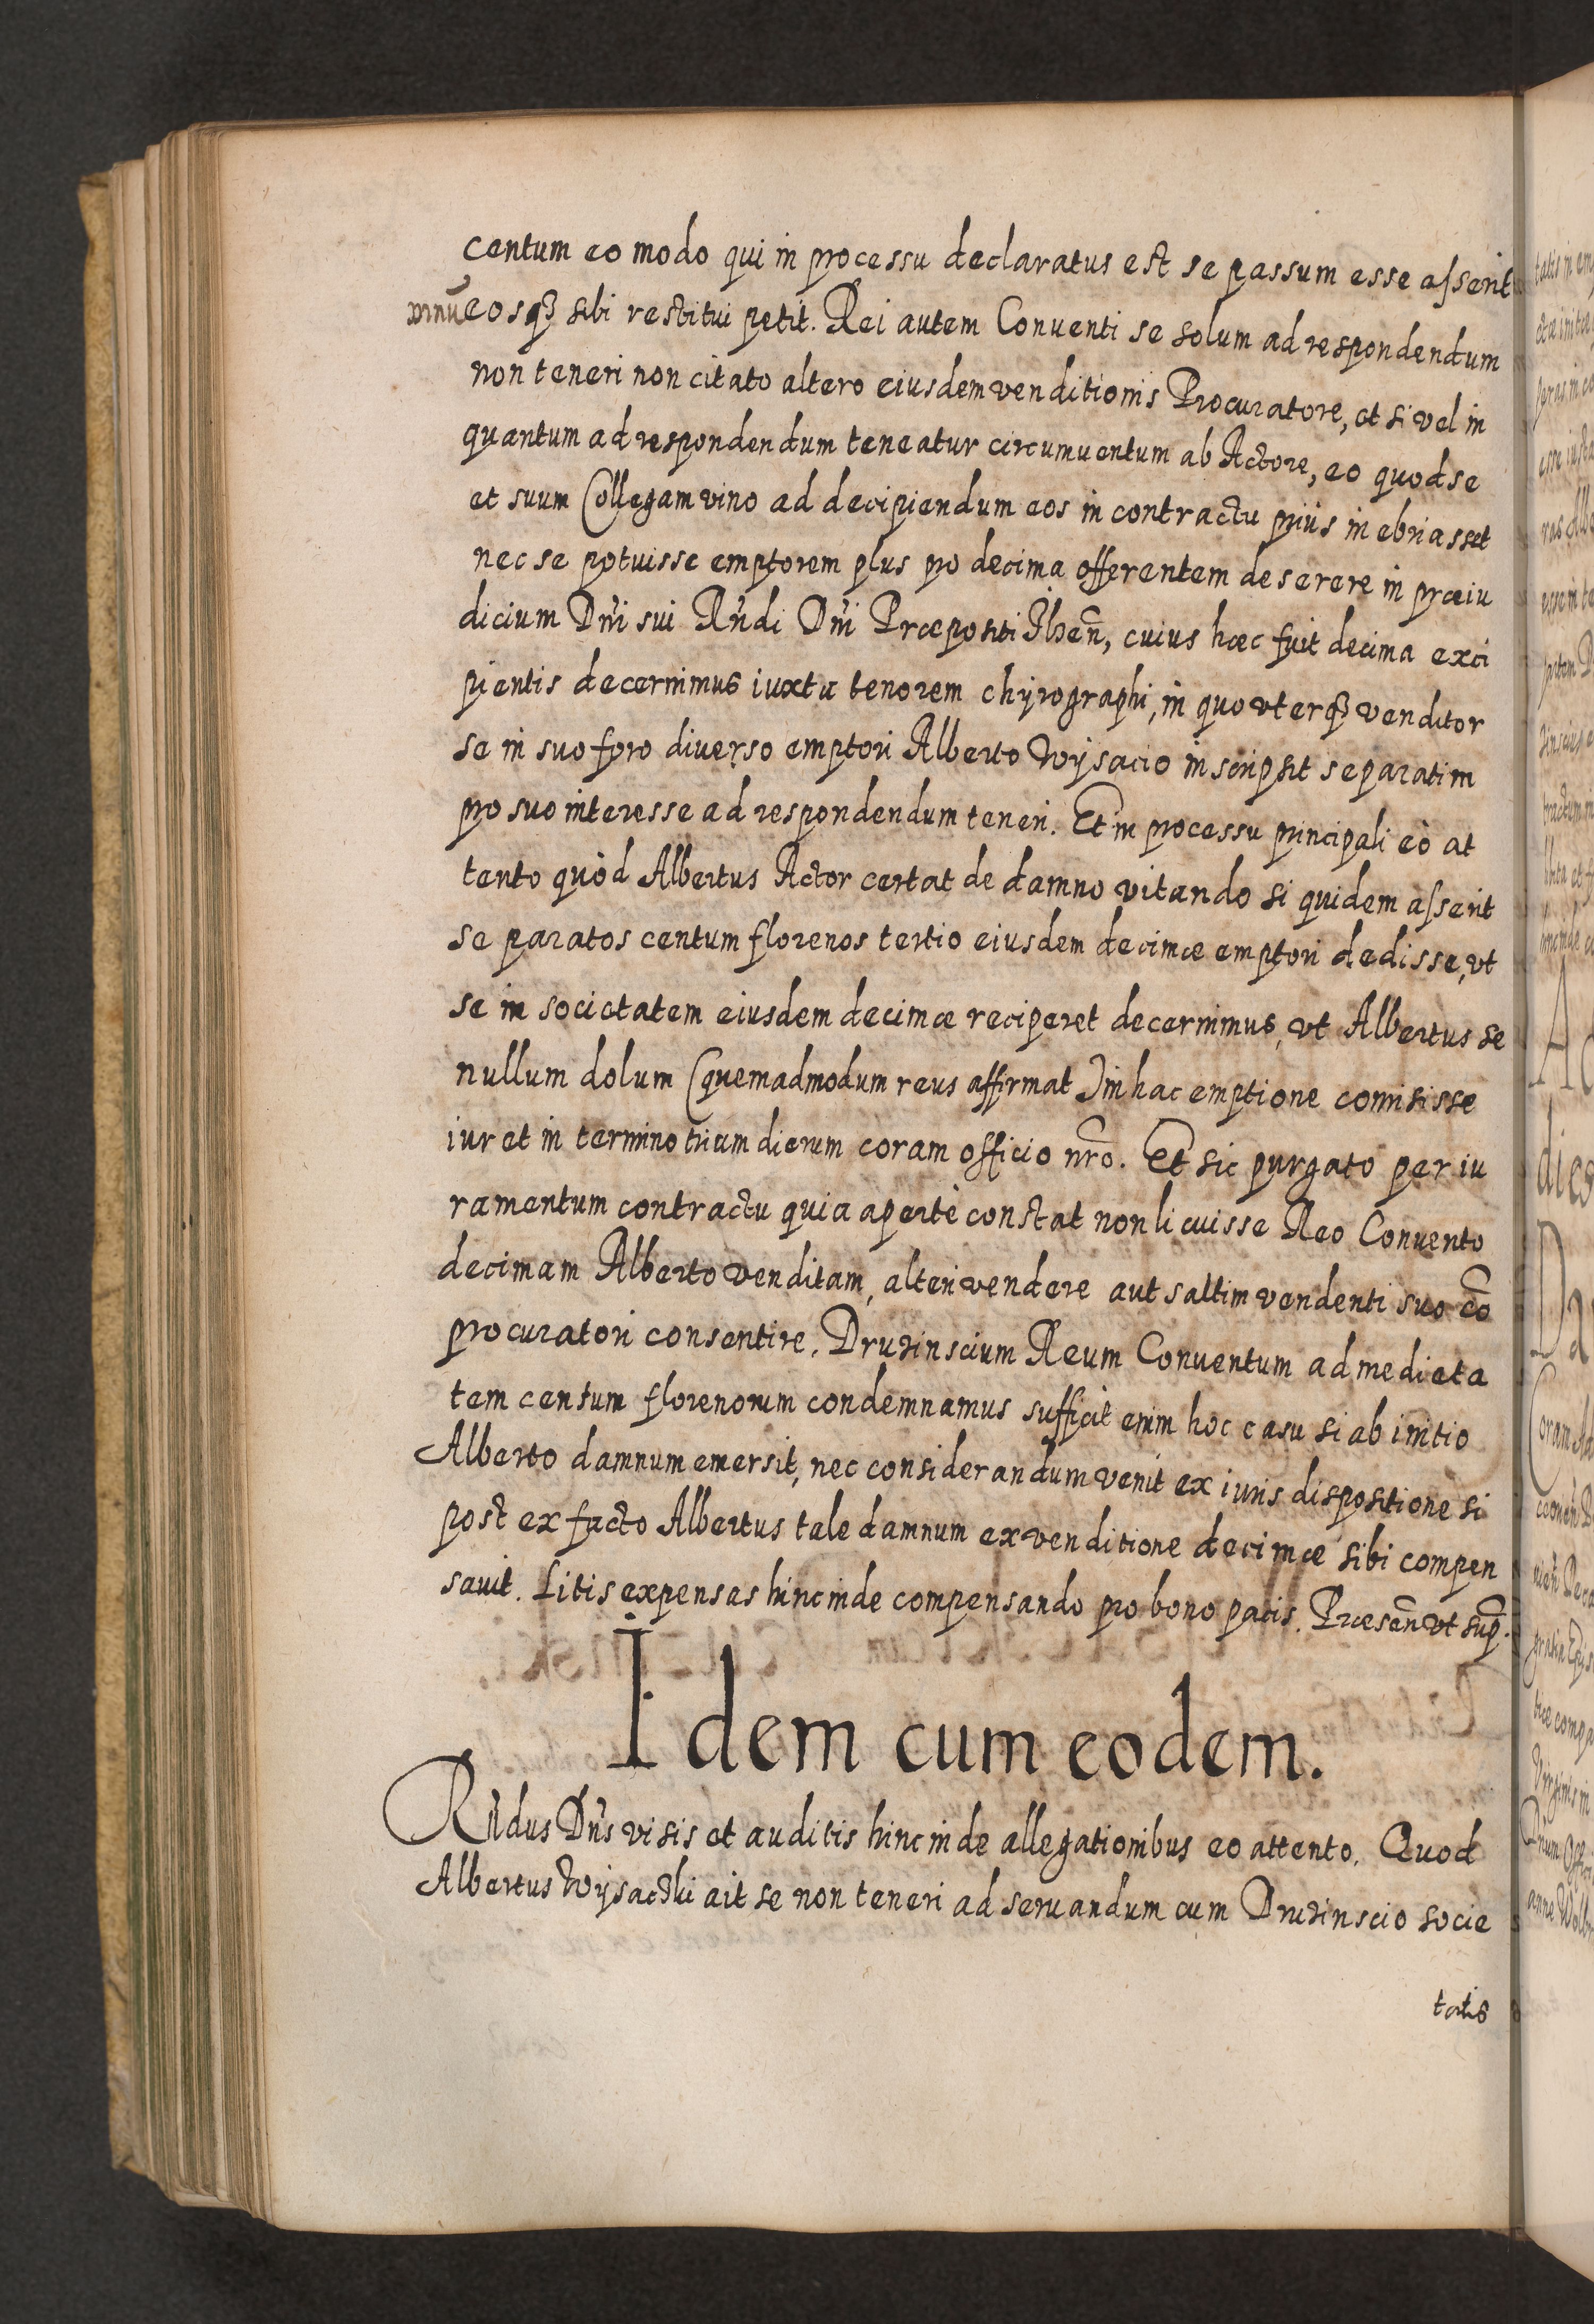 centum eo modo qui in processu declaratus est se passum esse asserit
eosq₃ sibi restitui petit. Rei autem Conuenti se solum ad respondendum
non teneri non citato altero eiusdem venditionis Procuratore, et si vel in
quantum ad respondendum teneatur circumuentum ab Actore, eo quod se
et suum Collegam vino ad decipiendum eos in contractu priùs inebriasset
nec se potuisse emptorem plus pro decima offerentem deserere in præiu
dicium Dni sui Rndi Dni Præpositi cuius hæc fuit decima exci
pientis decernimus iuxta tenorem chyrographi, in quo vterq₃ venditor
se in suo foro diuerso emptori Alberto Wysacio inscripsit separatim
pro suo interesse ad respondendum teneri. Et in processu principali eò at
tento quòd Albertus Actor certat de damno vitando si quidem asserit
se paratos centum florenos tertio eiusdem decimæ emptori dedisse, vt
se in societatem eiusdem decimæ reciperet decernimus, vt Albertus se
nullum dolum (quemadmodum reus affirmat) in hac emptione comisisse
iuret in termino trium dierum coram officio nrō. Et sic purgato per iu
ramentum contractu quia apertè constat non licuisse Reo Conuento
decimam Alberto venditam, alteri vendere aut saltim vendenti suo cō
procuratori consentire, Druzinscium Reum Conuentum ad medieta
tem centum florenorum condemnamus sufficit enim hoc casu si ab initio
Alberto damnum emersit, nec considerandum venit ex iuris dispositione si
post ex facto Albertus tale damnum ex venditione decimæ sibi compen
sauit. Litis expensas hinc inde compensando pro bono pacis. Præsen̄ vt sup̄.
Idem cum eodem.
Rndus Dns visis et auditis hinc inde allegationibus eo attento. Quod
Albertus Wysactki ait se non teneri ad seruandum cum Druzinscio socie
tatis